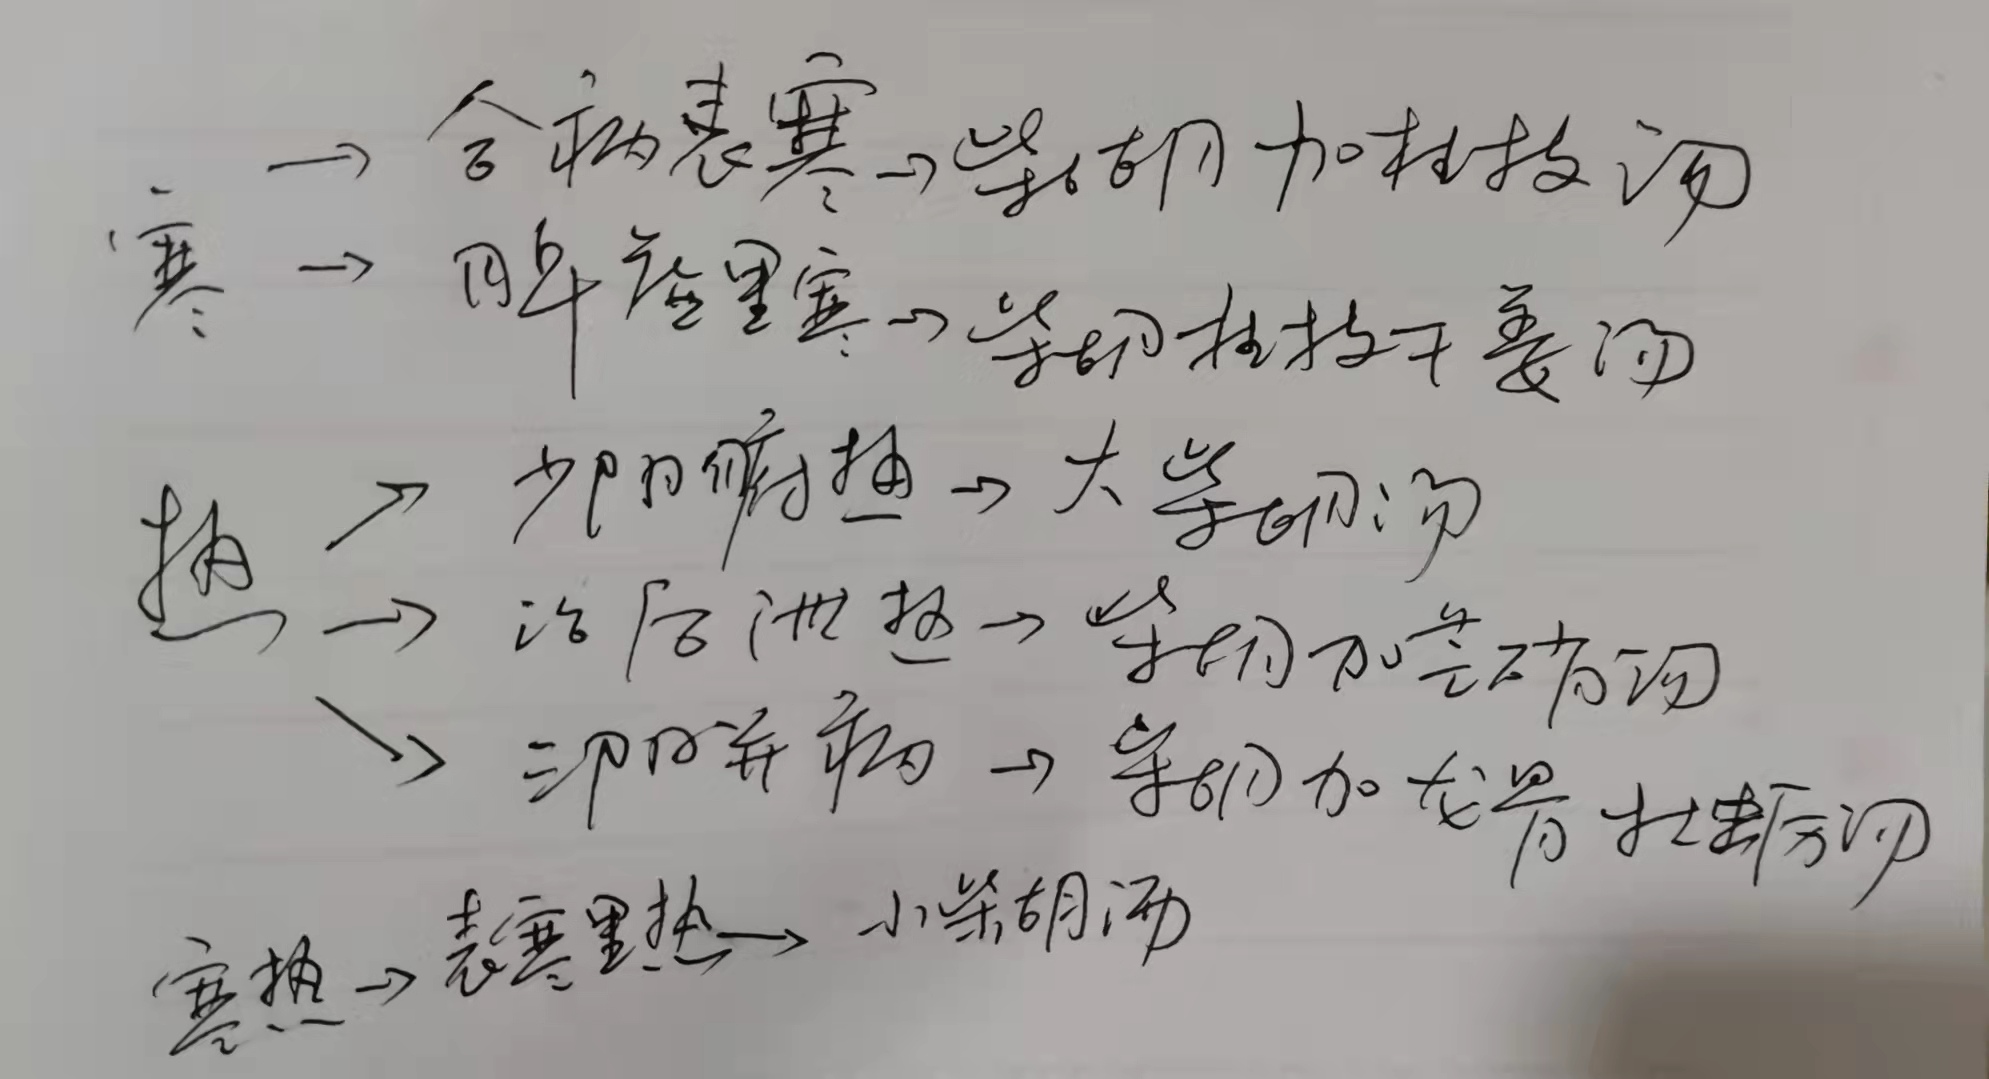 寒 → 合病表寒 → 柴胡加桂枝汤
→ 脾虚里寒 → 柴胡桂枝干姜汤
热 → 少阳腑热 → 大柴胡汤
→ 治后泄热 → 柴胡加芒硝汤
→ 三阳并病 → 柴胡加龙骨牡蛎汤
寒热 → 表寒里热 → 小柴胡汤